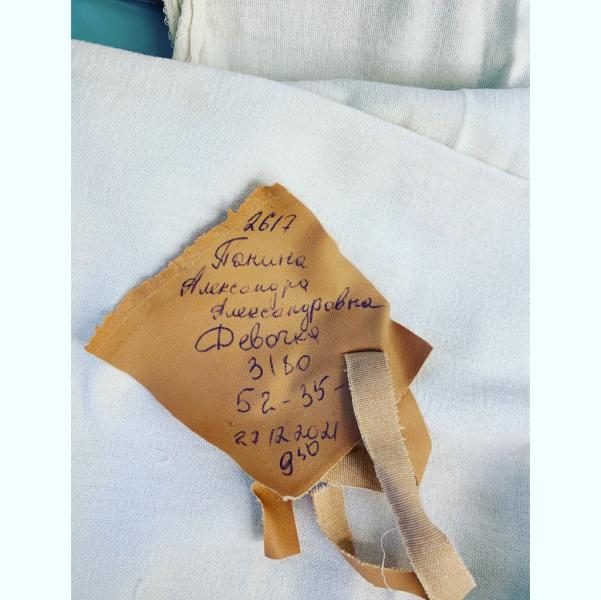 2617
Панина
Александра
Александровна
Девочка
3180
52-35-
27 12 2021
9 30